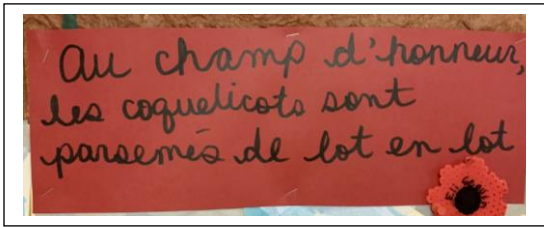 Au champ d'honneur,
les coquelicots sont
parsemés de lot en lot